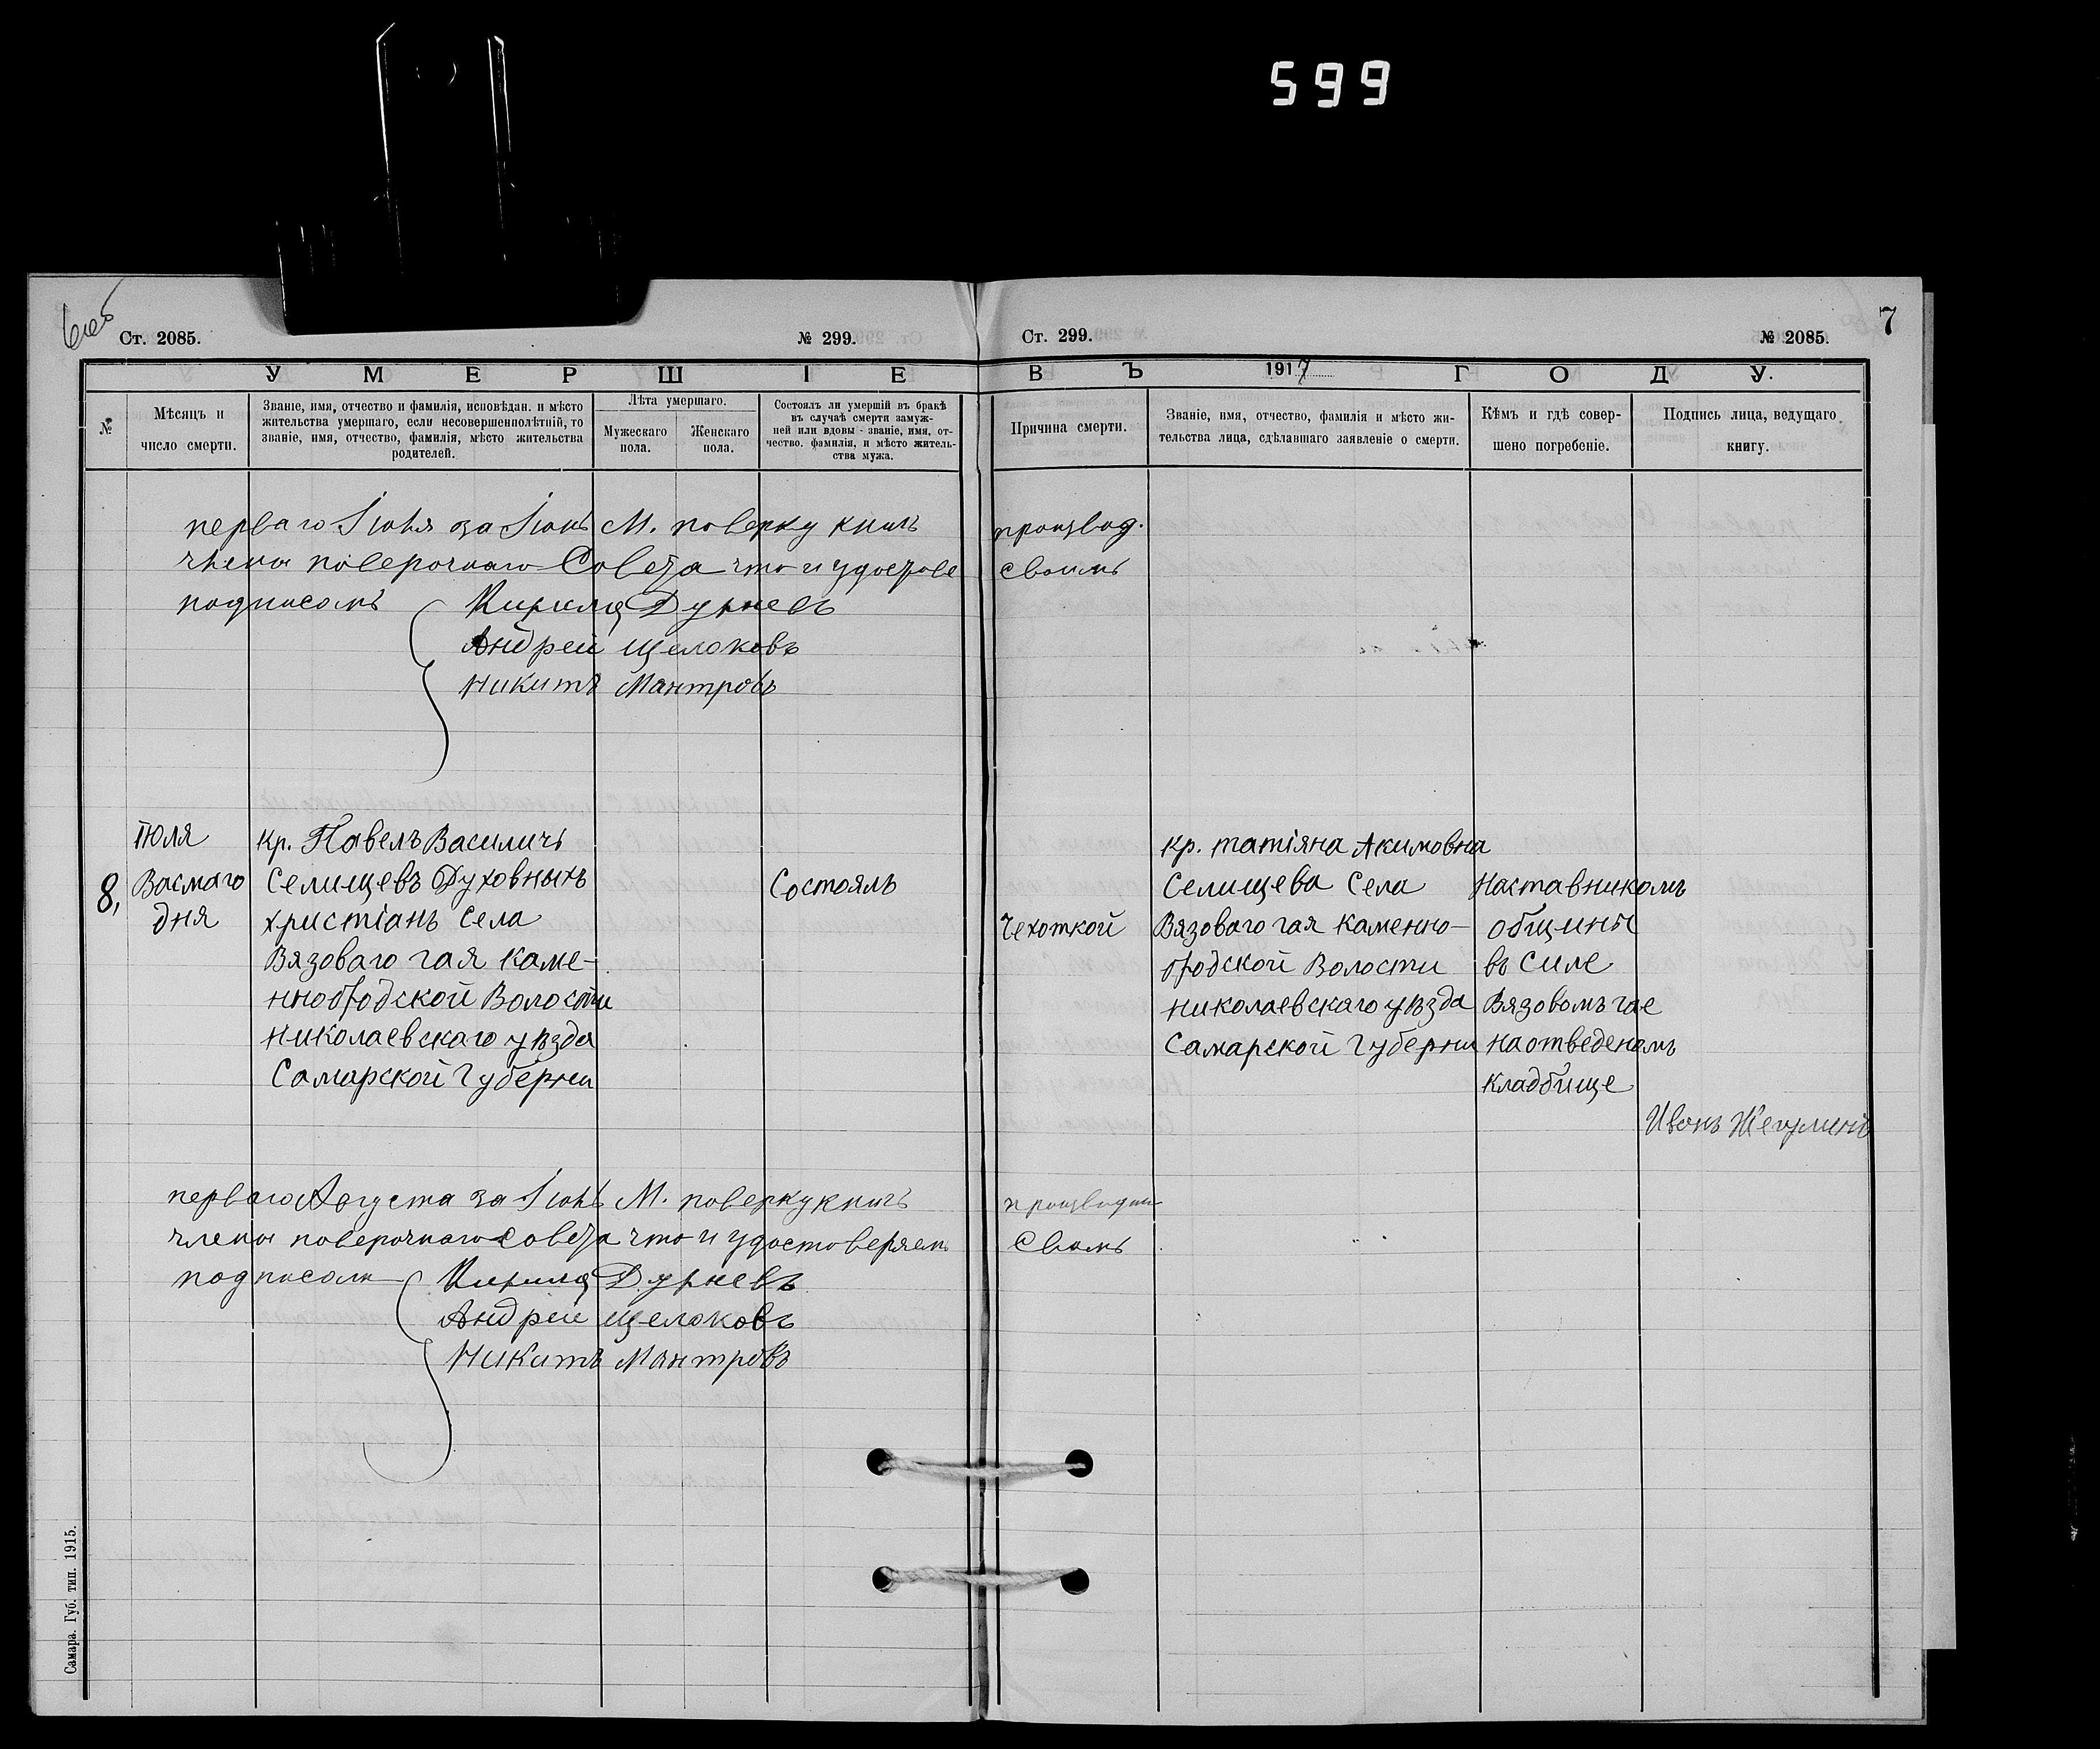 599
6об
Ст. 2085.
№ 299.
Ст. 299.
№ 2085.
7
УМЕРШІЕ
ВЪ 1917 ГОДУ.
№
Мѣсяцъ и
число смерти.
Званіе, имя, отчество и фамилія, исповѣдан. и мѣсто
жительства умершаго, если несовершеннолѣтній, то
званіе, имя, отчество, фамилія, мѣсто жительства
родителей.
Лѣта умершаго.
Мужескаго
пола.
Женскаго
пола.
Состоялъ ли умершій въ бракѣ
въ случаѣ смерти замуж-
ней или вдовы - званіе, имя, от-
чество, фамилія, и мѣсто житель-
ства мужа.
Причина смерти.
Званіе, имя, отчество, фамилія и мѣсто жи-
тельства лица, сдѣлавшаго заявленіе о смерти.
Кѣмъ и гдѣ совер-
шено погребеніе.
Подпись лица, ведущаго
книгу.
перваго Іюля за Іюнь М. поверку книгъ производ.
члены поверочнаго Совета что и удостове своимъ
подписомъ Кирила Дурневъ
Андрей Щелоковъ
Никита Мантровъ
8,
Іюля
Васмаго
дня
кр. Павелъ Василичь
Селищевъ Духовныхъ
христіанъ Села
Вязоваго гая каме-
ннобродской Волости
николаевскаго уѣзда
Самарской Губерни
Состоялъ
Чехоткой
кр. татіяна Акимовна
Селищева Села
Вязоваго гая каменно-
бродской Волости
николаевскаго уѣзда
Самарской Губерни
Наставникомъ
общины
въ Силе
Вязовомъ гае
на отведеномъ
кладбище
Иванъ Жегулинъ
перваго Августа за Іюль М. поверку книгъ
члены поверочнаго совета что и удостоверяем Своимъ
подписом Кирила Дурневъ
Андрей Щелоковъ
Никита Мантровъ
Самара. Губ. тип. 1915.